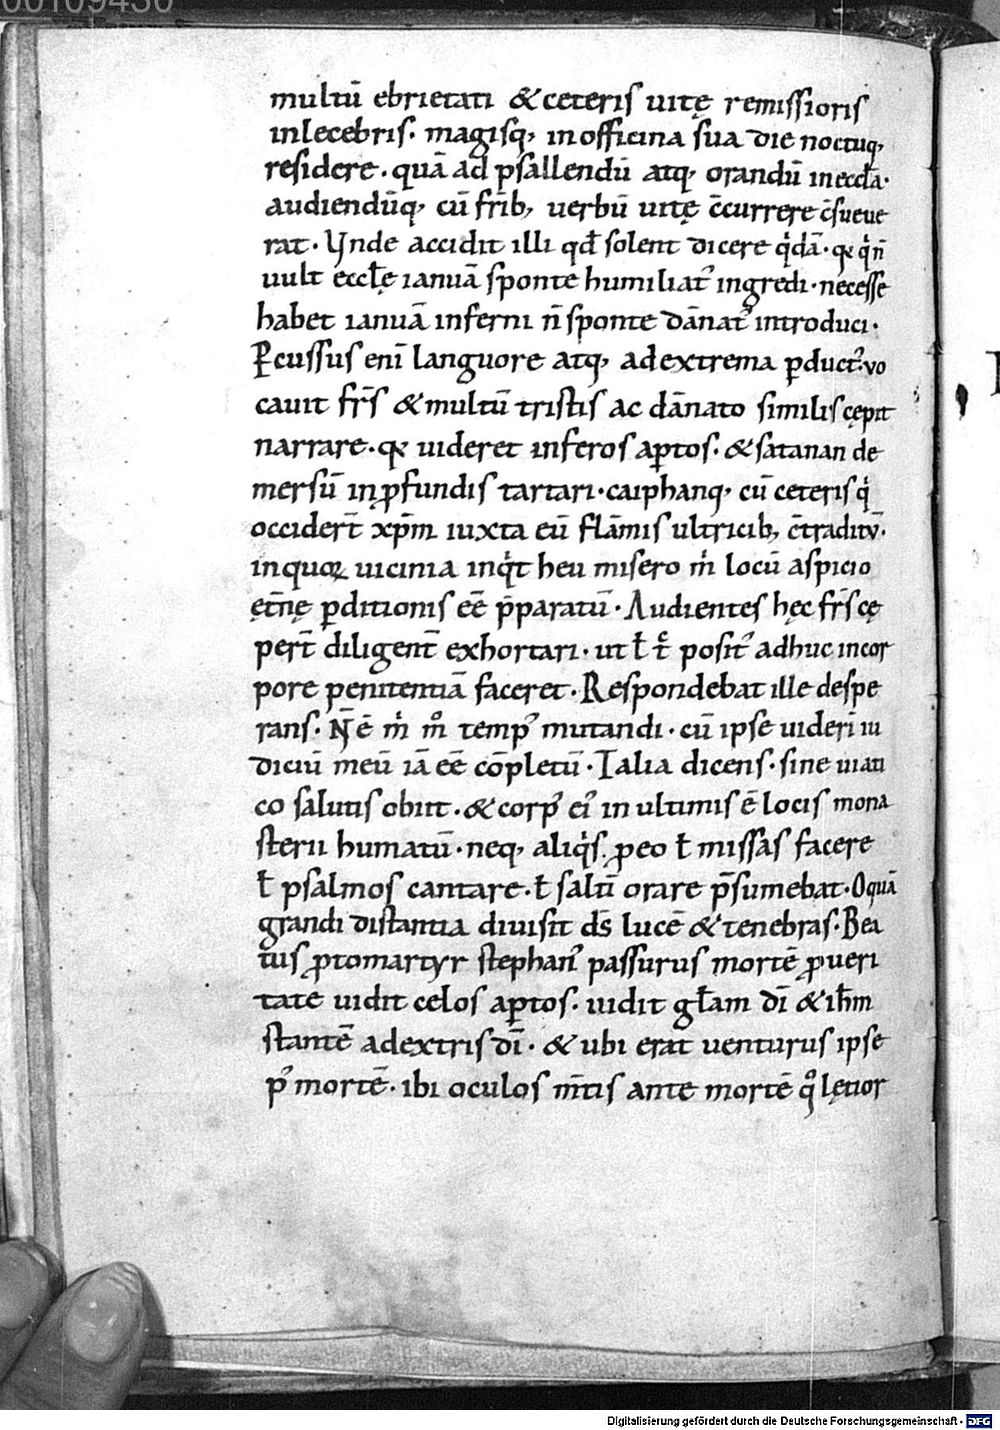 00109430
multū ebrietati &ceteris uitę remissioris
inlecebris. magisq; in officina sua die noctuq;
residere. quā ad psallendū atq; orandū in eccła.
audiendūq; cū fr̄ib; uerbū uitę c̄currere c̄sueue
rat. Vnde accidit illi qđ solent dicere q̇dā. qꝛ q̇ n̄
uult eccłę ianuā sponte humiliatꝰ ingredi. necesse
habet ianuā inferni n̄ sponte dānatꝰ introduci.
Ꝑcussus enī languore atq; ad extrema ꝑductꝰ. vo
cauit fr̄s & multū tristis ac dānato similis cępit
narrare. qꝛ uideret inferos aꝑtos. & satanan de
mersū in ꝓfundis tartari. caiphanq; cū ceteris q̇
occidert̄ xp̄m iuxta eū flāmis ultricib; c̄traditū.
in quoꝝ uicinia inq̇t heu misero ṁ locū aspicio
ęt̄nę ꝑditionis eē p̄paratū. Audientes hęc fr̄s cę
pert̄ diligent̄ exhortari. ut ł t̄ positꝰ adhuc in cor
pore penitentiā faceret. Respondebat ille despe
rans. N̄ ē ṁ m̊ tempꝰ mutandi. cū ipse uiderī iu
diciū meū iā eē cōpletū. Talia dicens. sine uiati
co salutis obiit. & corpꝰ eiꝰ in ultimis ē locis mona
sterii humatū. neq; aliq̇s. ꝓ eo ł missas facere
ł psalmos cantare. ł saltū orare p̄sumebat. O quā
grandi distantia diuisit d̄s lucē & tenebras. Bea
tus ꝓtomartyr stephanꝰ passurus mortē ꝓ ueri
tate uidit celos aꝑtos. uidit głam dī & ih̄m
stantē a dextris dī. & ubi erat uenturus ipse
pꝰ mortē. ibi oculos m̄tis ante mortē q̊ lętior
Digitalisierung gefördert durch die Deutsche Forschungsgemeinschaft - DFG